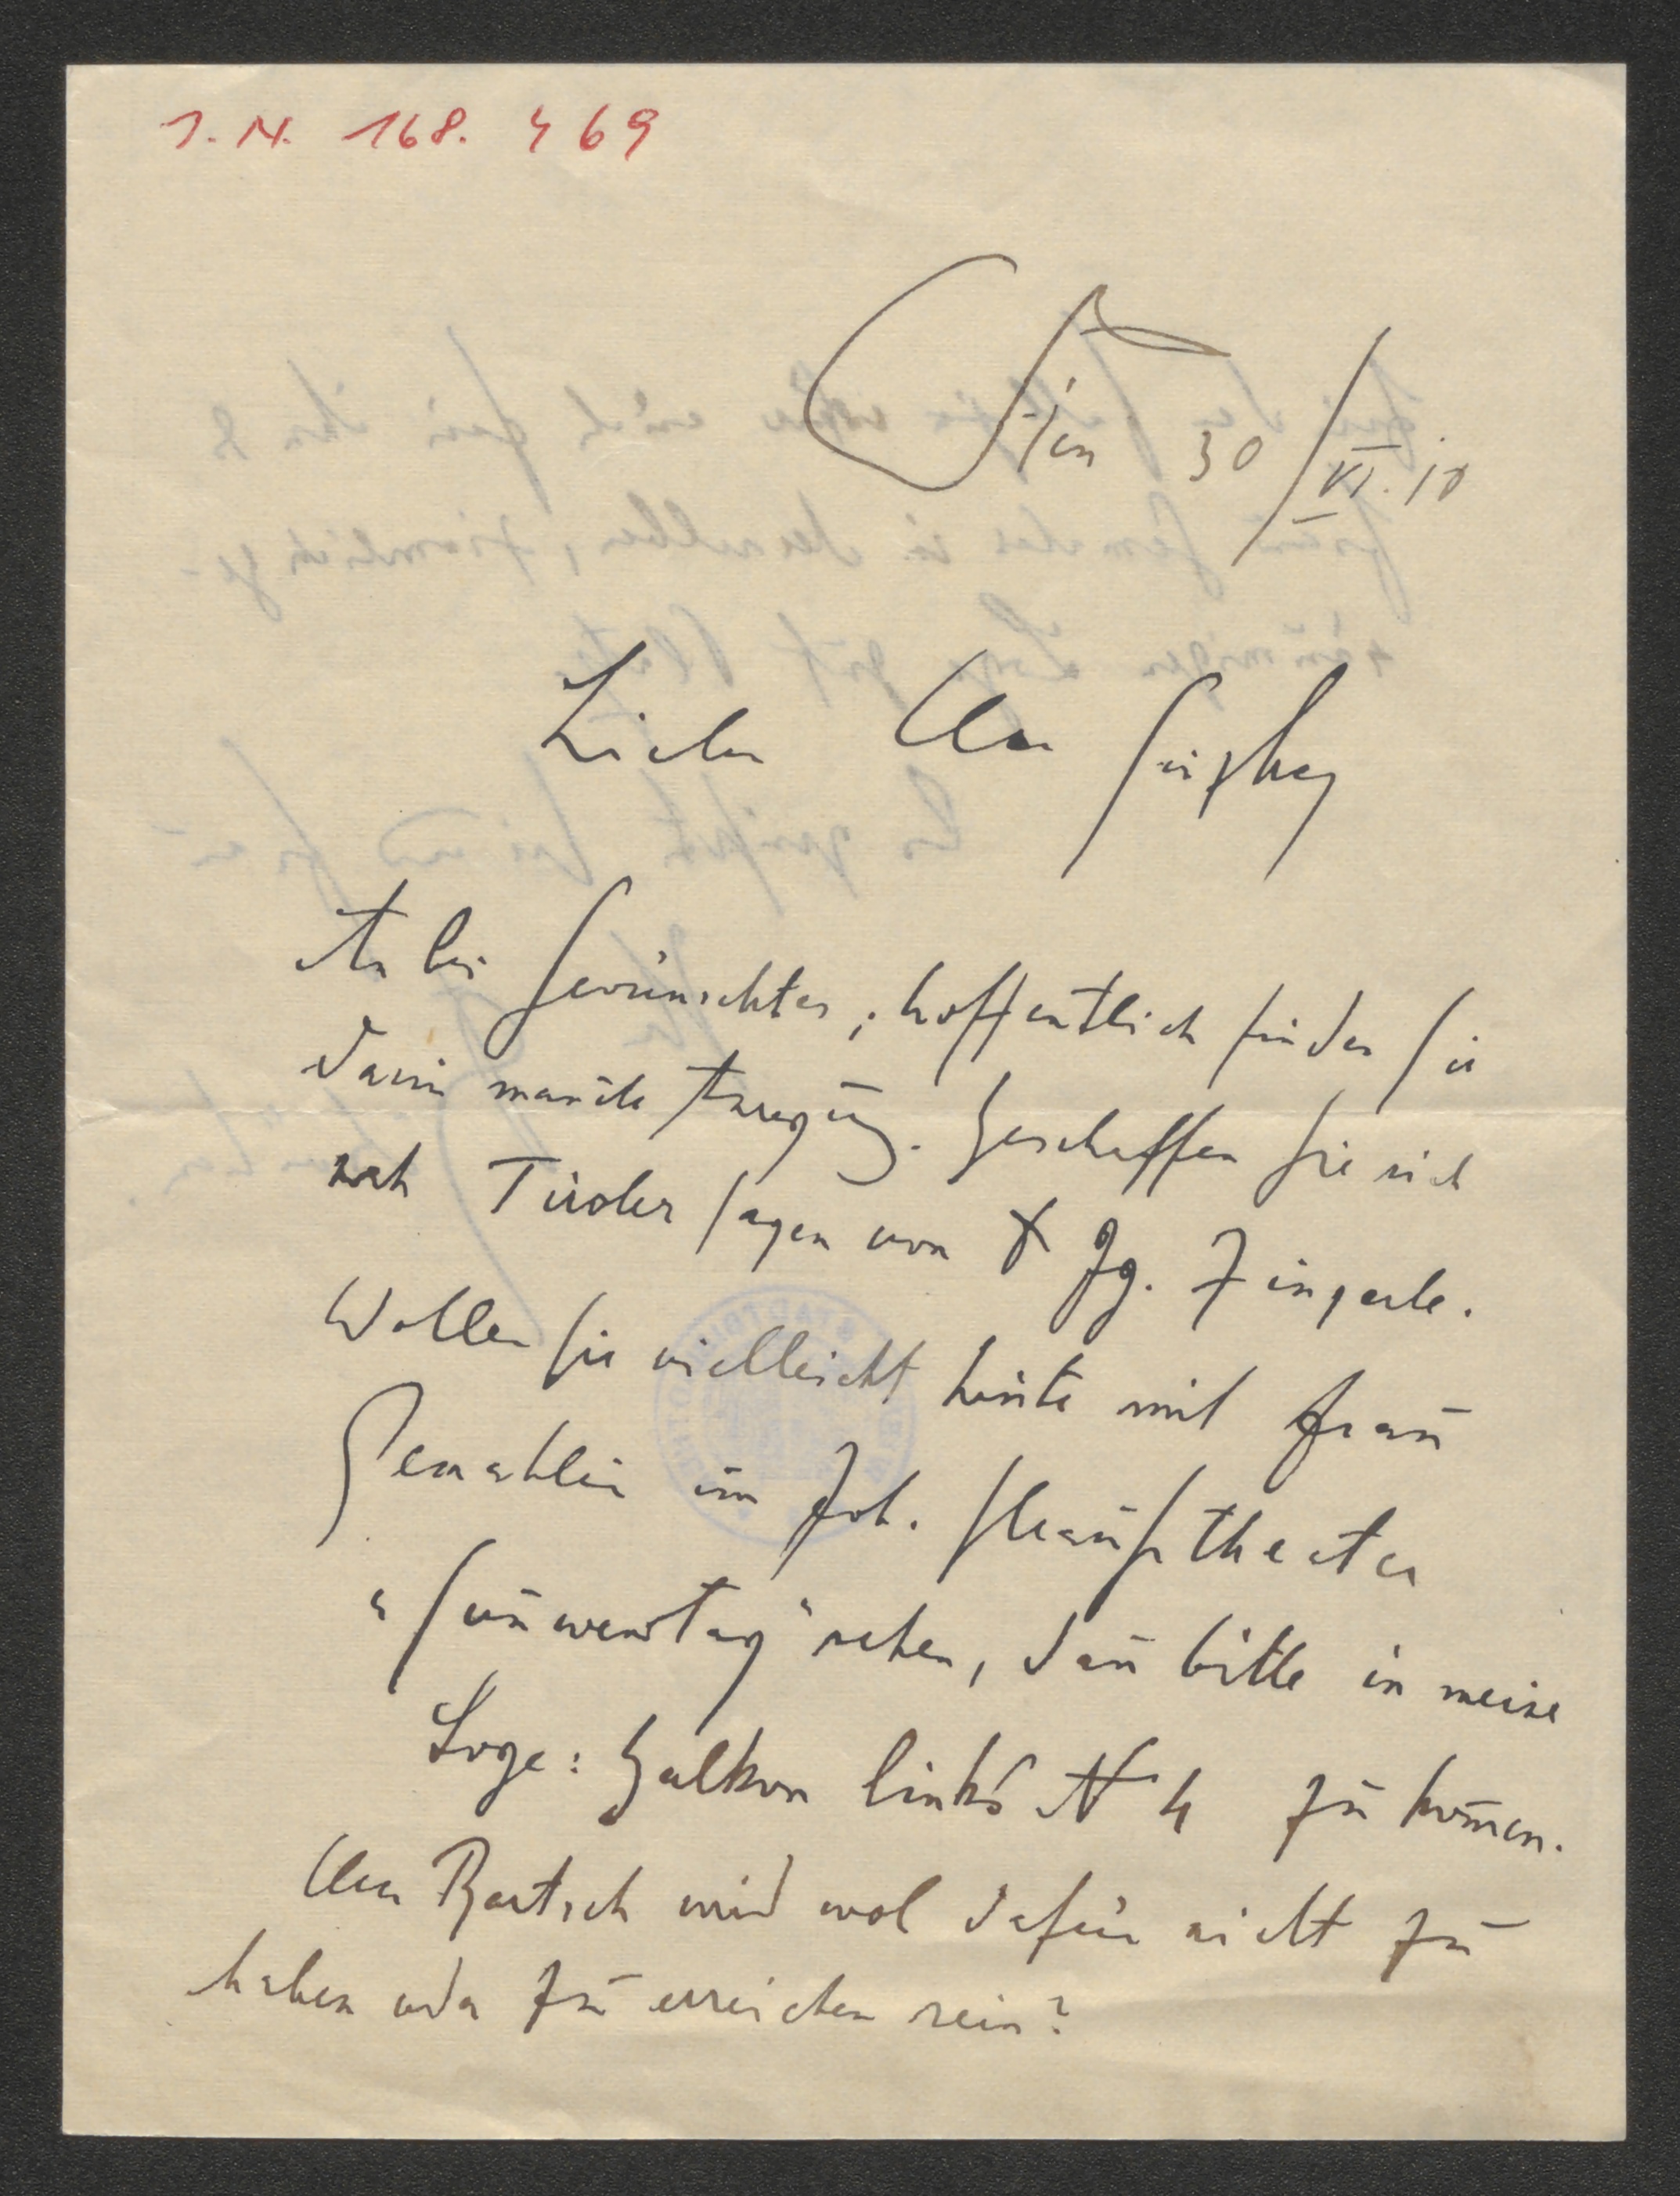 I. N. 168.469
Wien 30/VI. 10
Lieber Herr Ginzkey
Anbei Gewünschtes; hoffentlich finden Sie
darin manche Anregung. Beschaffen Sie sich
noch Tiroler Sagen von † Ig. Zingerle.
Wollen Sie vielleicht heute mit Frau
Gemahlin im Joh. Straußtheater
"Sun̄wendtag" sehen, dan̄ bitte in meine
Loge: Balkon links N 4 zu kom̄en.
Herr Bartsch wird wol dafür nicht zu
haben oder zu erreichen sein?